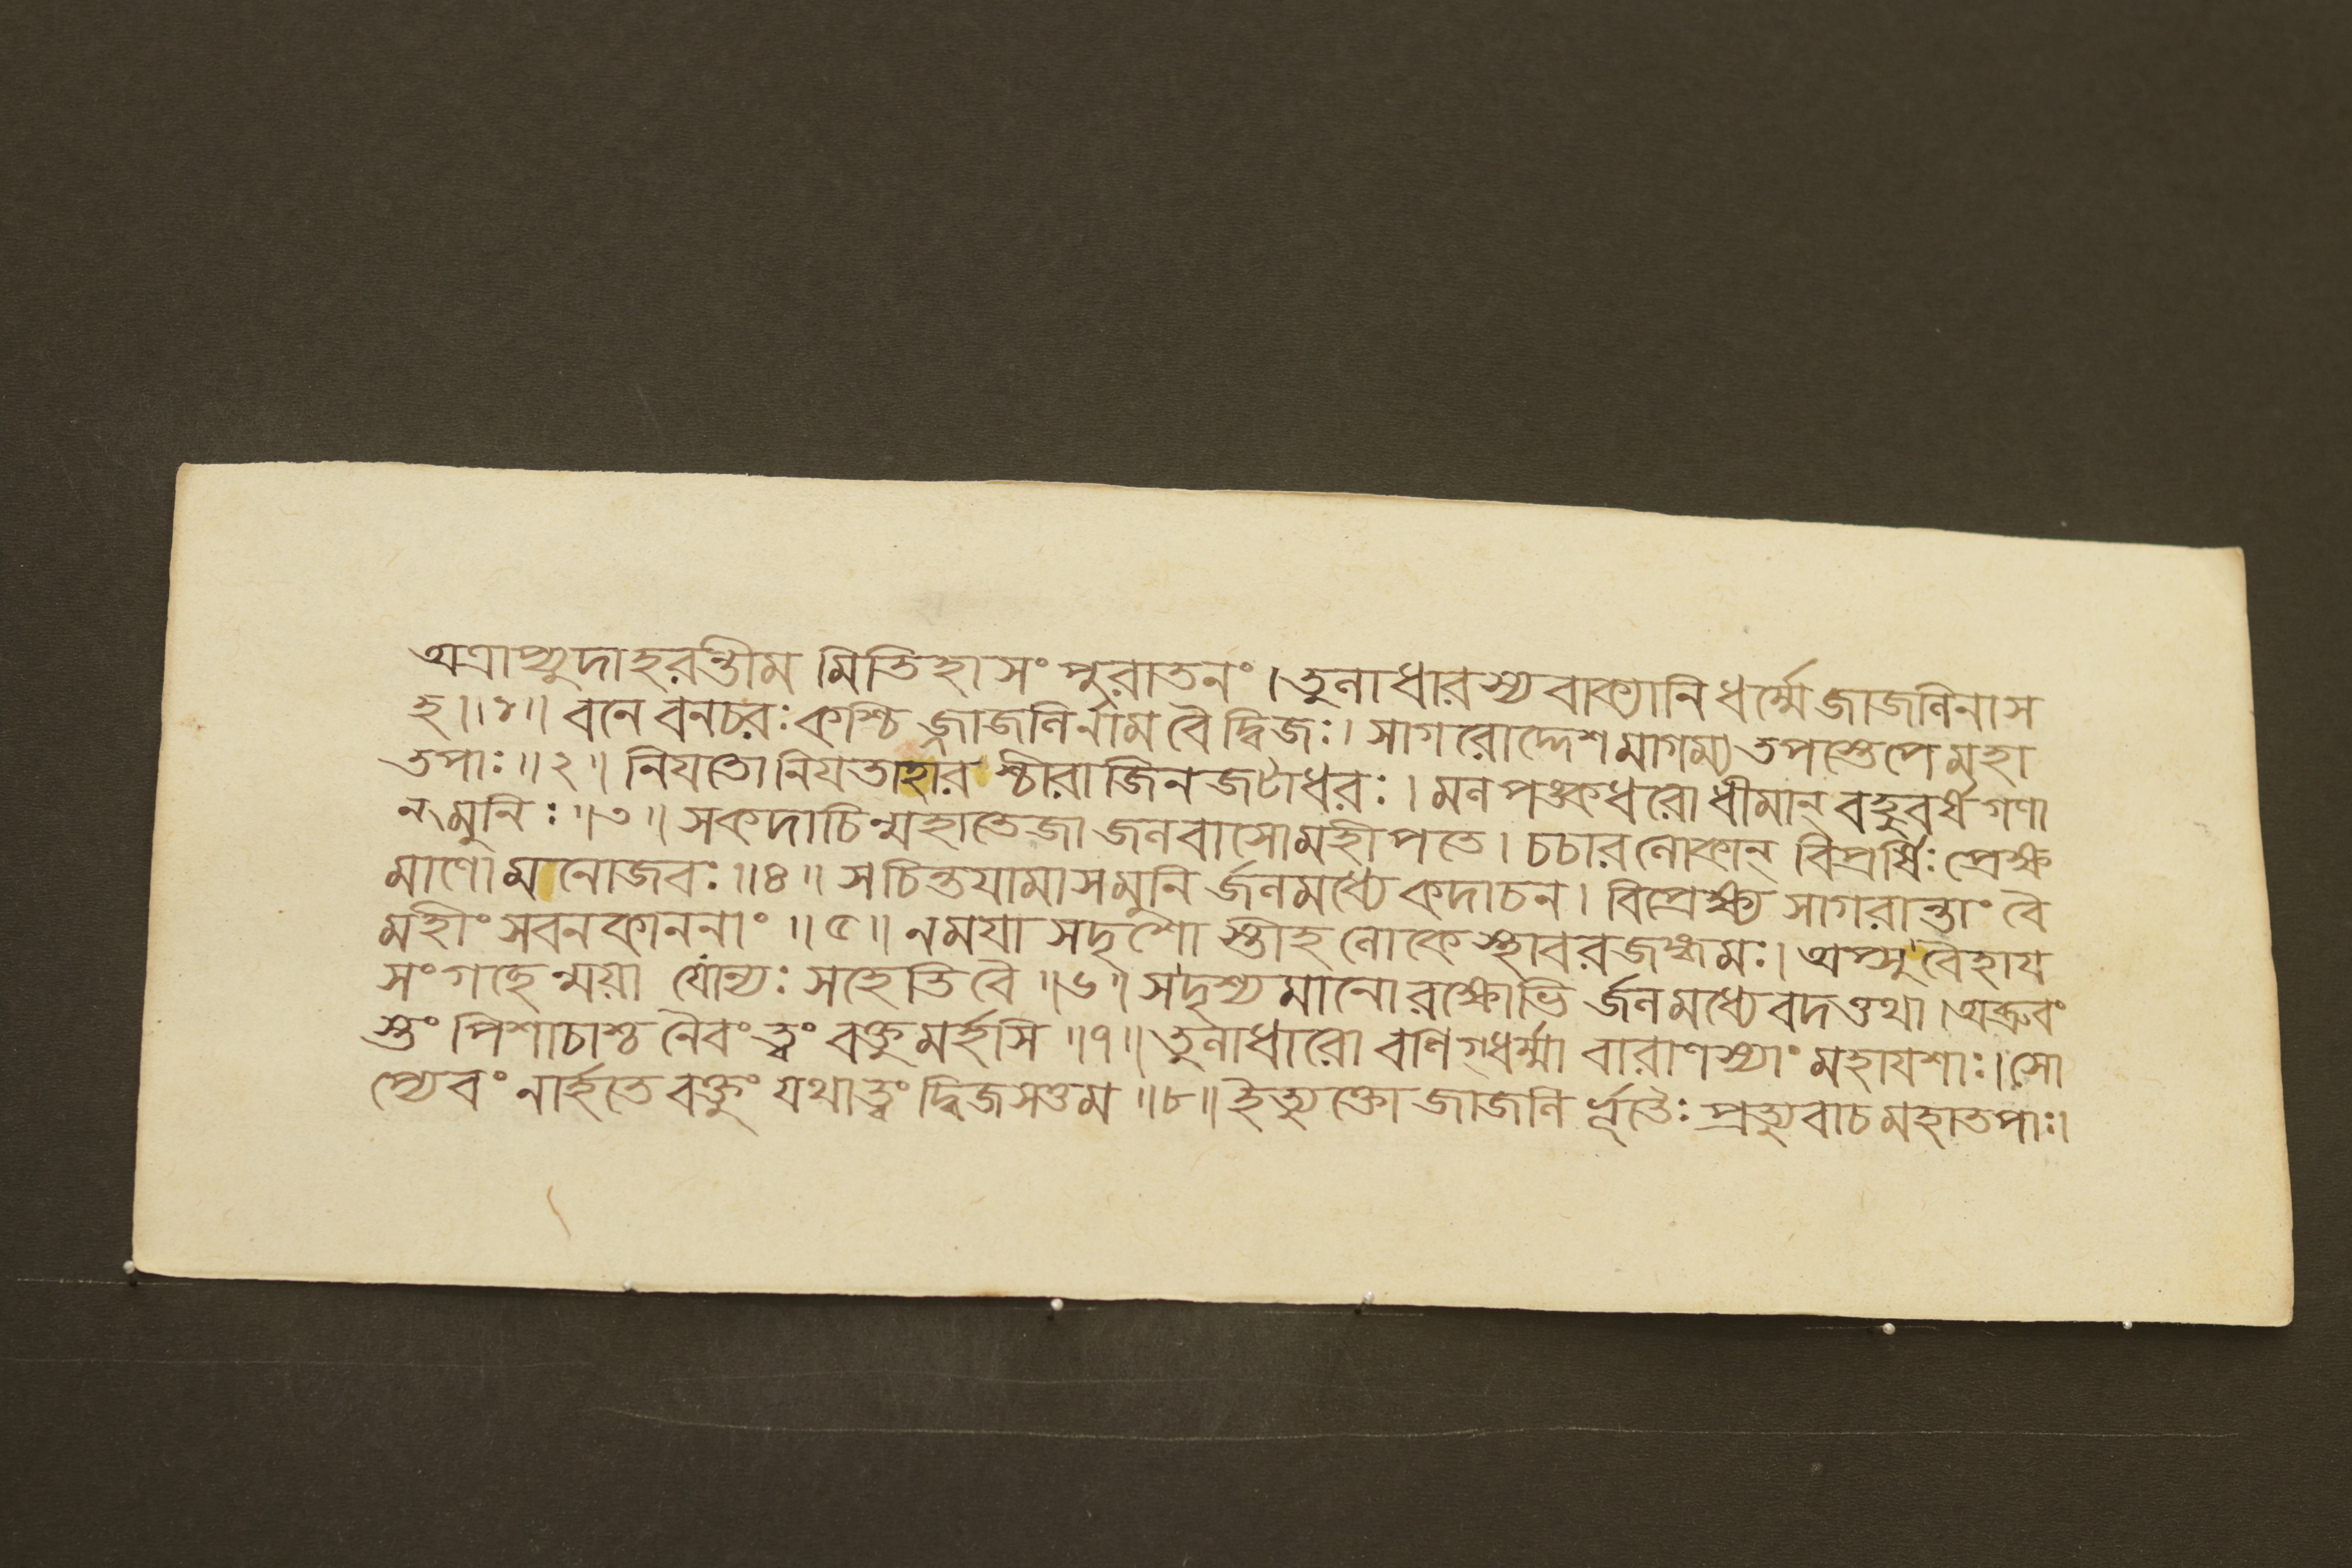 অত্রাপ্যুদাহরন্তীম মিতিহাসং পুরাতনং । তুলাধারস্য বাক্যানি ধর্ম্মে জাজলিনা স
হ ॥১॥ বনে বনচরঃ কশ্চি জ্জাজলির্নাম বৈ দ্বিজঃ। সাগরোদ্দেশমাগম্য তপস্তেপে মহা
তপাঃ ॥২॥ নিযতো নিযতাহার শ্চীরাজিন জটাধরঃ । মল পঙ্কধরো ধীমান্ বহুবর্ষ গণা
ন্ মুনিঃ ॥৩॥ স কদাচিন্মহাতেজা জলবাসো মহীপতে । চচার লোকান্ বিপ্রর্ষিঃ প্রেক্ষ
মাণো মনোজবঃ ॥৪॥ স চিন্তযামাস মুনি র্জলমধ্যে কদাচন । বিপ্রেক্ষ্য সাগরান্তাং বৈ
মহীং সবনকাননাং ॥৫॥ ন ময়া সদৃশো স্তীহ লোকে স্থাবরজঙ্গমঃ। অপ্সু বৈহায
সং গচ্ছেন্ময়া যোন্যঃ সহেতি বৈ ॥৬॥ স দৃশ্যমানো রক্ষোভি র্জলমধ্যে বদত্তথা । অব্রুবং
স্তং পিশাচাশ্চ নৈবং ত্বং বক্তুমর্হসি ॥৭॥ তুলাধারো বণিগ্ধর্ম্মা বারাণস্যাং মহাযশাঃ। সো
প্যেবং নার্হতে বক্তুং যথা ত্বং দ্বিজসত্তম ॥৮॥ ইত্যুক্তো জাজলি র্ভূতৈঃ প্রত্যুবাচ মহাতপাঃ।